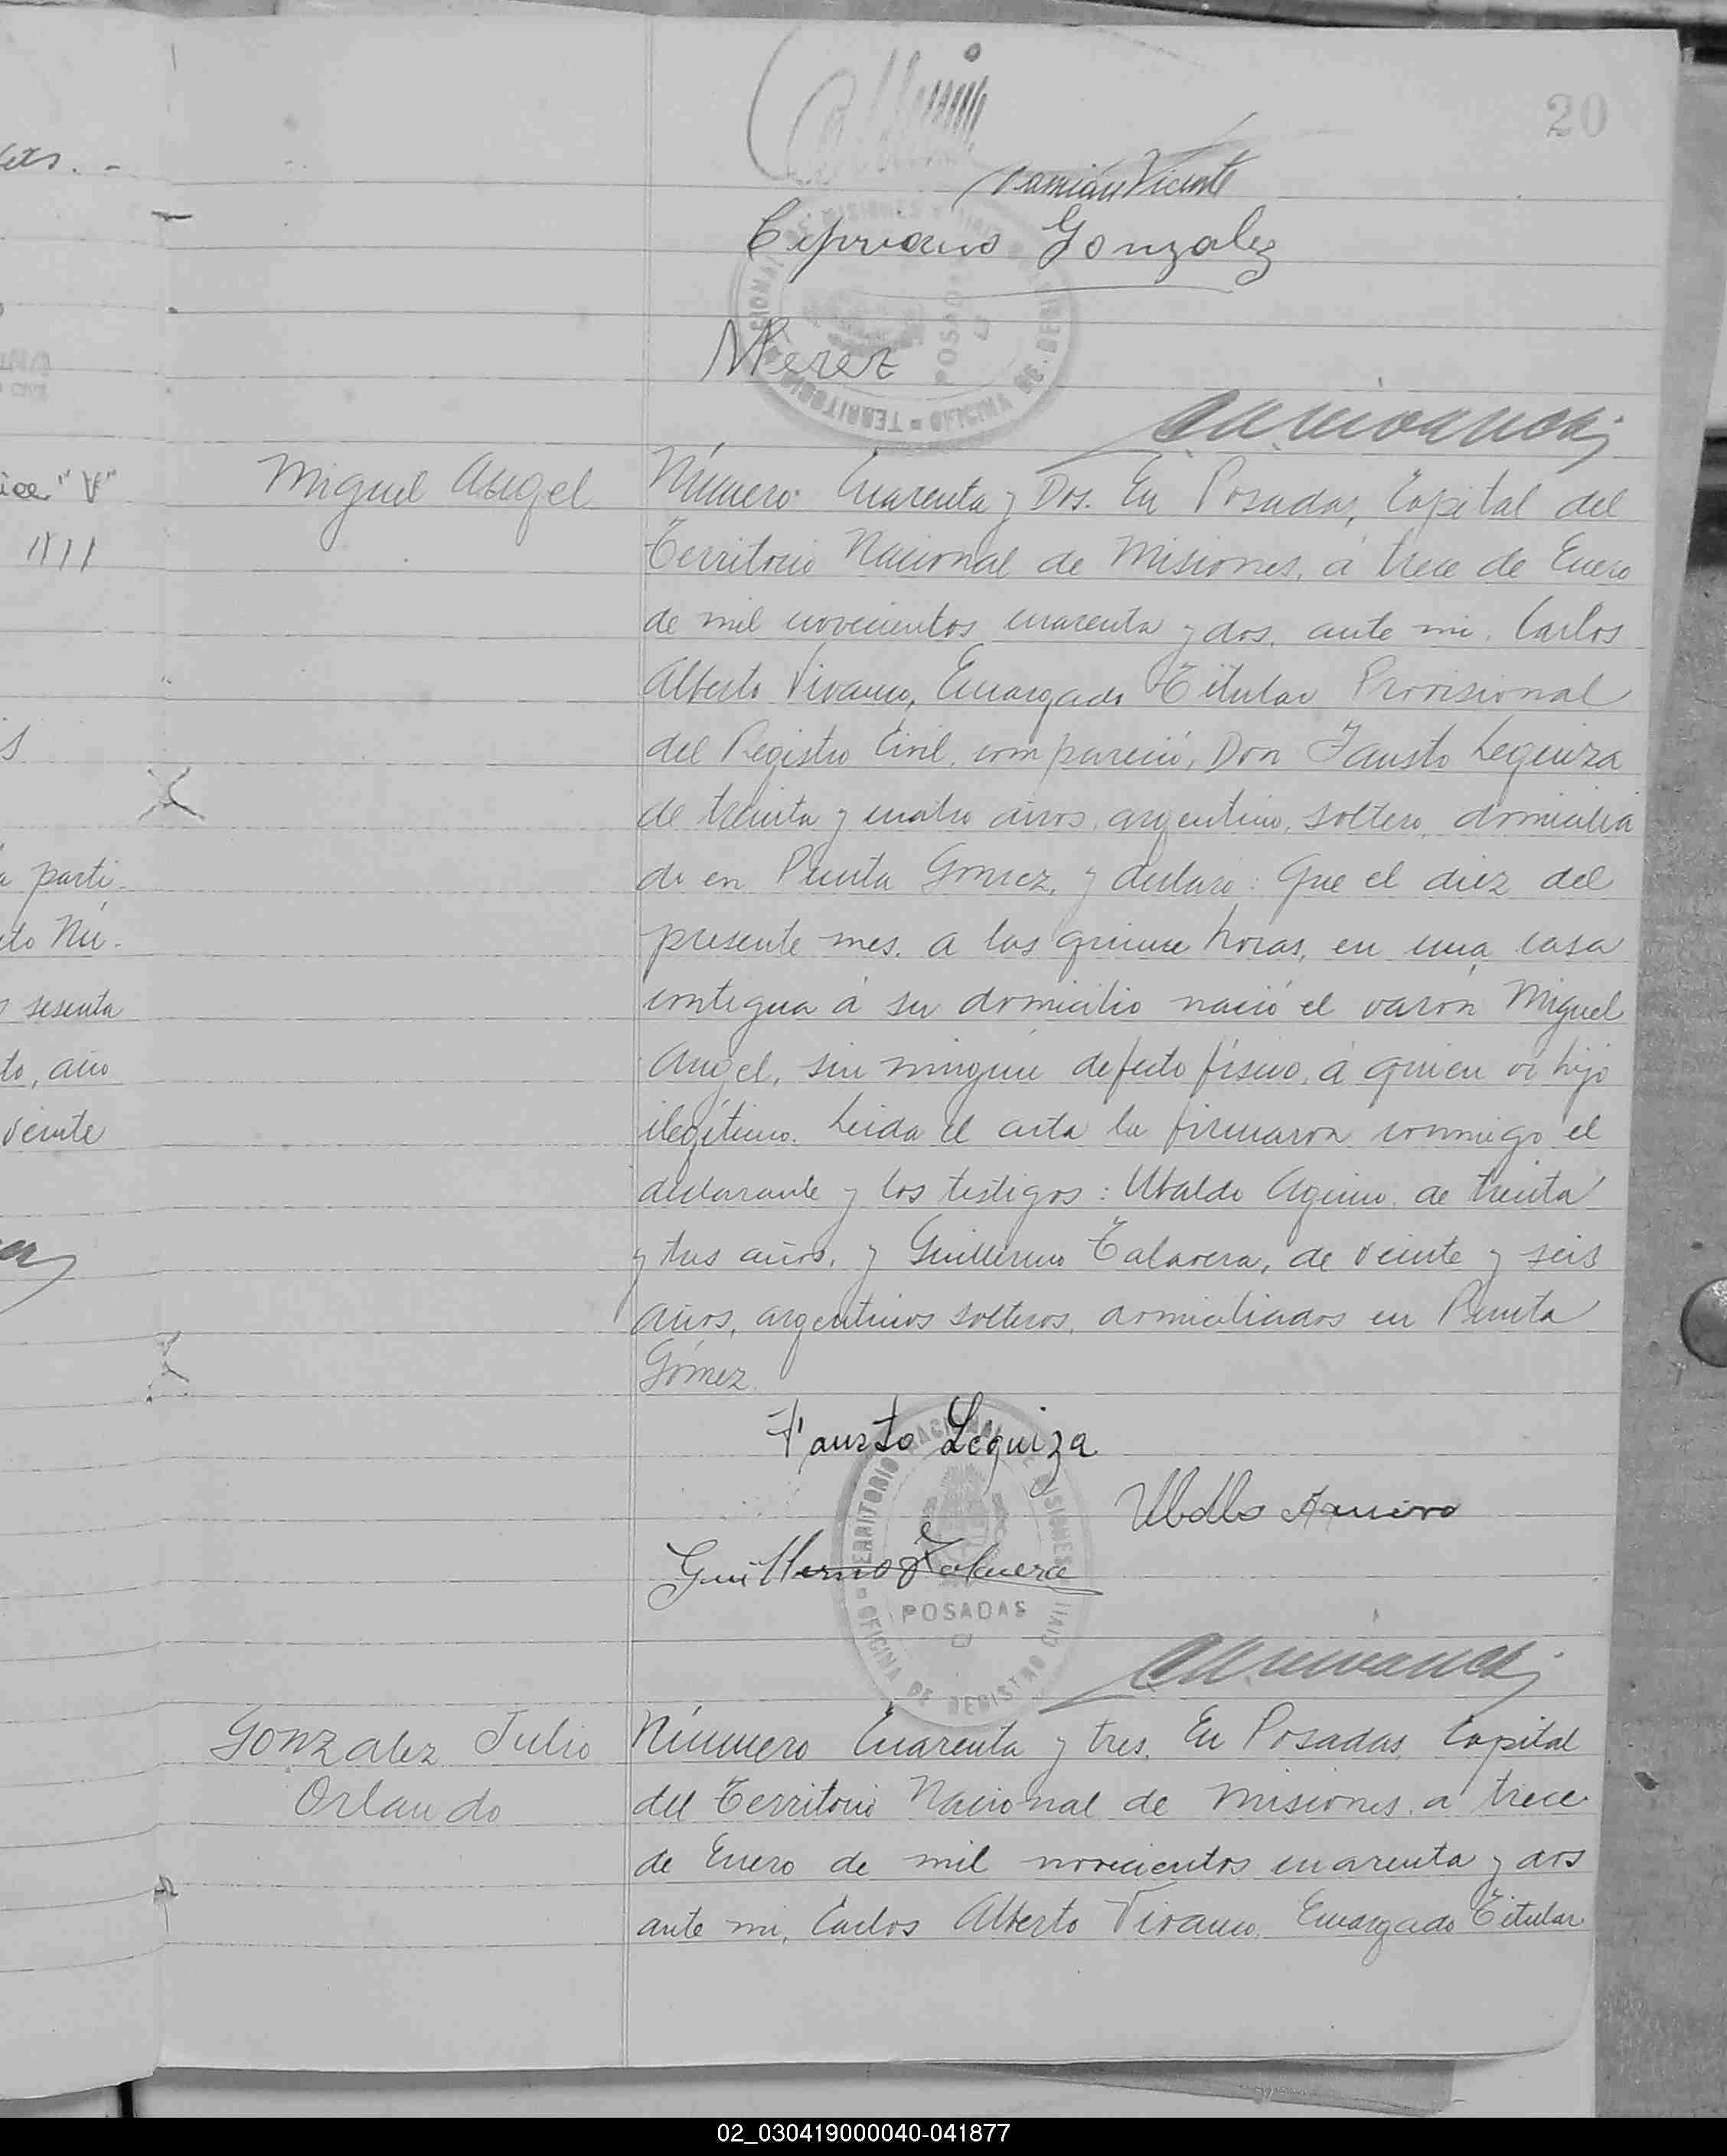 20
ices. -
Damián Vicente
Cipriano Gonzalez
NPerez
ice "V"
Miguel Angel
Número Cuarenta y Dos. En Posadas, Capital del
Territorio Nacional de Misiones, á trece de Enero
de mil novecientos cuarenta y dos, ante mi, Carlos
Alberto Vivanco, Encargado Titular Provisional
del Registro Civil, compareció, Don Fausto Leguiza
de treinta y cuatro años, argentino, soltero, domicilia
do en Punta Gomez, y declaró: Que el diez del
presente mes, a las quince horas, en una casa
contigua á su domicilio nació el varón Miguel
Angel, sin ningún defecto físico, á quien vi hijo
ilegítimo. Leida el acta la firmaron conmigo el
declarante y los testigos: Ubaldo Aquino, de treinta
y tres años, y Guillermo Talavera, de veinte y seis
años, argentinos solteros, domiciliados en Punta
Gómez.
a parti
to Nú-
sesenta
to, año
veinte
Fausto Leguiza
Ubaldo Aquino
Guillermo Talavera
TERRITORIO NACIONAL DE MISIONES
OFICINA DE REGISTRO CIVIL
POSADAS
Gonzalez Julio
Orlando
Número Cuarenta y tres. En Posadas, Capital
del Territorio Nacional de Misiones, a trece
de Enero de mil novecientos cuarenta y dos
ante mi, Carlos Alberto Vivanco, Encargado Titular
02_030419000040-041877